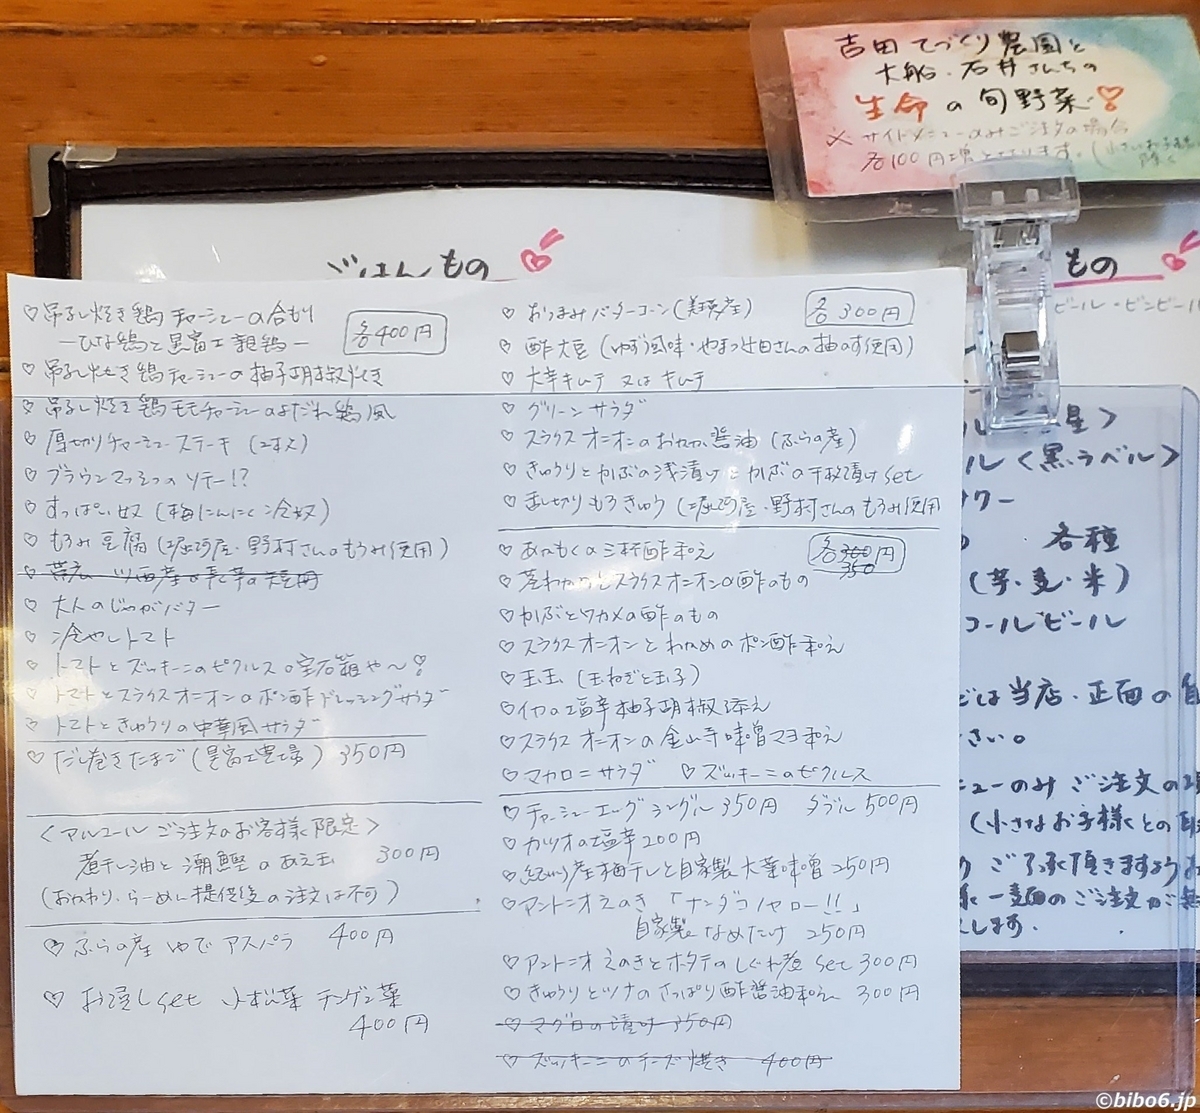 吉田てづくり農園と
大船・石井さんちの
生命の旬野菜
※サイドメニューのみご注文の場合
各100円増となります。(小さいお子様
除く
ごはんもの
もの
♡吊るし焼き鶏チャーシューの合もり
ーひな鶏と黒富士親鶏ー
各400円
♡吊るし焼き鶏チャーシューの柚子胡椒
♡吊るし焼き鶏モモチャーシューのよだれ鶏風
♡厚切りチャーシューステーキ
♡ブラウンマッシュのソテー!?
♡すっぱい奴(梅にんにく冷奴)
♡もろみ豆腐(堀河屋・野村さんのもろみ使用)
♡大人のじゃがバター
♡冷やしトマト
♡トマトとズッキーニのピクルスの宝石箱や〜
♡トマトとスライスオニオンのポン酢ドレッシングサラダ
♡トマトときゅうりの中華風サラダ
♡だし巻きたまご(黒富士農場) 350円
<アルコールご注文のお客様限定>
煮干し油と潮鰹のあえ玉 300円
(おかわり・らーめん提供後の注文は不可)
♡ふらの産ゆでアスパラ 400円
♡お浸しset 小松菜 チンゲン菜
400円
♡おつまみバターコーン(美瑛産)
各300円
♡酢大豆(ゆず風味・やまつ辻田さんの柚のす使用)
♡大辛キムチ又はキムチ
♡グリーンサラダ
♡スライスオニオンのおかか醤油(ふらの産)
♡きゅうりとかぶの浅漬けとかぶの千枚漬けset
♡まし切りもろきゅう(堀河屋・野村さんのもろみ使用
♡あかもくの三杯酢和え
各300円
350
♡茎わかめとスライスオニオンの酢のもの
♡かぶとワカメの酢のもの
♡スライスオニオンとわかめのポン酢和え
♡玉玉(玉ねぎと玉子)
♡イカの塩辛柚子胡椒添え
♡スライスオニオンの金山寺味噌マヨ和え
♡マカロニサラダ ♡ズッキーニのピクルス
♡チャーシューエッグ シングル350円 ダブル500円
♡カツオの塩辛200円
♡紀州産梅干しと自家製大葉味噌250円
♡アントニオえのき「ナンダコノヤロー!!」
自家製なめたけ 250円
♡アントニオえのきとホタテのしぐれ煮set 300円
♡きゅうりとツナのさっぱり酢醤油和え 300円
♡マグロの漬け 350円
♡ズッキーニのチーズ焼き 400円
ビール・ビンビール
星>
ル<黒ラベル>
サワー
各種
(芋・麦・米)
コールビール
は当店・正面の自
さい。
ニューのみご注文の
(小さなお子様との
ご了承頂きますよう
一麺のご注文が
します。
©bibo6.jp